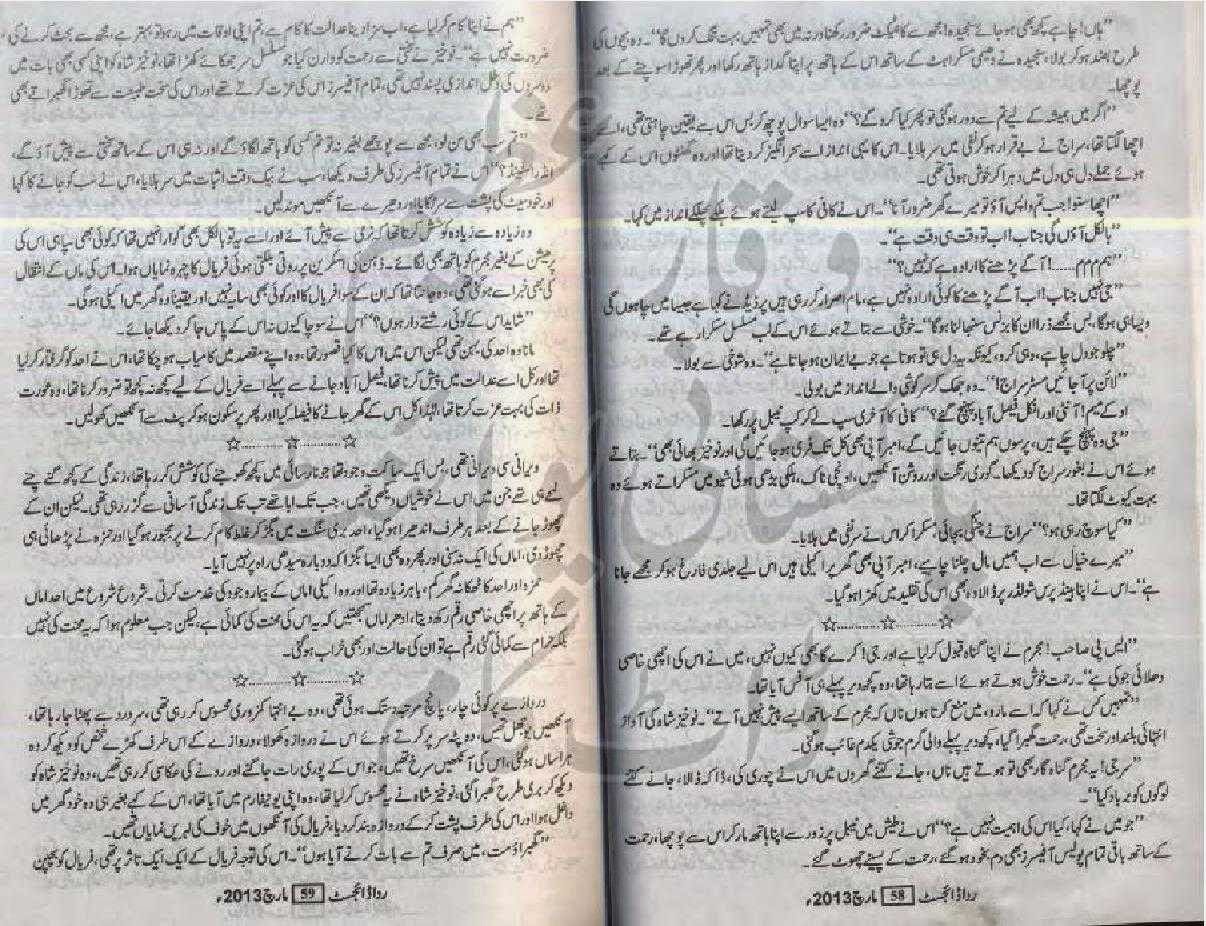 "ہاں! چاہے کچھ بھی ہو جائے سنجیدہ! مجھ سے کانٹیکٹ ضرور رکھنا ورنہ میں بھی تمہیں بہت تنگ کروں گا"۔ وہ بچوں کی
طرح بضد ہو کر بولا، سنجیدہ نے دھیمی مسکراہٹ کے ساتھ اس کے ہاتھ پر اپنا گداز ہاتھ رکھا اور پھر تھوڑا سوچنے کے بعد
پوچھا۔
"اگر میں ہمیشہ کے لیے تم سے دور ہو گئی تو پھر کیا کرو گے؟" وہ ایسا سوال پوچھ کر بس اس سے یقین چاہتی تھی، اسے
اچھا لگتا تھا، سراج نے بے قرار ہو کر نفی میں سر ہلایا۔ اس کا یہی انداز اسے سحر انگیز کر دیتا تھا اور وہ گھنٹوں اس کے کہے
ہوئے جملے دل ہی دل میں دہرا کر خوش ہوتی تھی۔
"اچھا سنو! جب تم واپس آؤ تو میرے گھر ضرور آنا"۔ اس نے کافی کا سپ لیتے ہوئے ہلکے پھلکے انداز میں کہا۔
"بالکل آؤں گی جناب! اب تو وقت ہی وقت ہے"۔
"ہم م م م......! آگے پڑھنے کا ارادہ ہے کہ نہیں؟"
"جی نہیں جناب! اب آگے پڑھنے کا کوئی ارادہ نہیں ہے، مام اصرار کر رہی ہیں پر ڈیڈ نے کہا ہے جیسا میں چاہوں گی
ویسا ہی ہو گا، بس مجھے ذرا ان کا بزنس سنبھالنا ہو گا"۔ خوشی سے بتاتے ہوئے اس کے لب مسلسل مسکرا رہے تھے۔
"چلو جو دل چاہے، وہی کرو، کیونکہ یہ دل ہی تو ہوتا ہے جو بے ایمان ہو جاتا ہے"۔ وہ شوخی سے بولا۔
"لائن پر آ جائیں مسٹر سراج!"۔ وہ جھک کر سرگوشی والے انداز میں بولی۔
اوکے میم! آنٹی اور انکل فیصل آباد پہنچ گئے؟" کافی کا آخری سپ لے کر کپ ٹیبل پر رکھا۔
"جی وہ پہنچ چکے ہیں، پرسوں ہم تینوں جائیں گے، امبر آپی بھی کل تک فری ہو جائیں گی اور نوخیز بھائی بھی"۔ بتاتے
ہوئے اس نے بغور سراج کو دیکھا۔ گوری رنگت اور روشن آنکھیں، اونچی ناک، ہلکی بڑھی ہوئی شیو میں مسکراتے ہوئے وہ
بہت کیوٹ لگتا تھا۔
"کیا سوچ رہی ہو؟" سراج نے چٹکی بجائی، مسکرا کر اس نے سر نفی میں ہلایا۔
"میرے خیال سے اب ہمیں ہال چلنا چاہیے، امبر آپی بھی گھر پر اکیلی ہیں اس لیے جلدی فارغ ہو کر مجھے جانا
ہے"۔ اس نے اپنا ہینڈ پرس شولڈر پر ڈالا وہ بھی اس کی تقلید میں کھڑا ہو گیا۔
☆............☆............☆
"ایس پی صاحب! مجرم نے اپنا گناہ قبول کر لیا ہے اور جی! کرے گا بھی کیوں نہیں، میں نے اس کی اچھی خاصی
دھلائی جو کی ہے"۔ رحمت خوش ہوتے ہوئے اسے بتا رہا تھا، وہ کچھ دیر پہلے ہی آفس آیا تھا۔
"تمہیں کس نے کہا کہ اسے مارو، میں منع کرتا ہوں ناں کہ مجرم کے ساتھ ایسے پیش نہیں آتے"۔ نوخیز شاہ کی آواز
انتہائی بلند اور سخت تھی، رحمت گھبرا گیا، کچھ دیر پہلے والی گرم جوشی یکدم غائب ہو گئی۔
"سر جی! یہ مجرم گناہ گار بھی تو ہوتے ہیں ناں، جانے کتنے گھروں میں اس نے چوری کی، ڈاکہ ڈالا، جانے کتنے
لوگوں کو برباد کیا"۔
"جو میں نے کہا، کیا اس کی اہمیت نہیں ہے؟" اس نے طیش میں ٹیبل پر زور سے اپنا ہاتھ مار کر اس سے پوچھا، رحمت
کے ساتھ باقی تمام پولیس آفیسرز بھی دم بخود ہو گئے، رحمت کے پسینے چھوٹ گئے۔
ردا ڈائجسٹ 58 مارچ 2013ء
"ہم نے اپنا کام کر لیا ہے، اب سزا دینا عدالت کا کام ہے، تم اپنی اوقات میں رہو تو بہتر ہے، مجھ سے بحث کرنے کی
ضرورت نہیں ہے"۔ نوخیز نے سختی سے رحمت کو وارن کیا جو مسلسل سر جھکائے کھڑا تھا، نوخیز شاہ کو اپنی کسی بھی بات میں
دوسروں کی دخل اندازی پسند نہیں تھی، تمام آفیسرز اس کی عزت کرتے تھے اور اس کی سخت طبیعت سے تھوڑا گھبراتے بھی
تھے۔
"تم سب بھی سن لو، مجھ سے پوچھے بغیر نہ تو تم کسی کو ہاتھ لگاؤ گے اور نہ ہی اس کے ساتھ سختی سے پیش آؤ گے،
انڈر اسٹینڈ؟" اس نے تمام آفیسرز کی طرف دیکھا، سب نے بیک وقت اثبات میں سر ہلایا، اس نے سب کو جانے کا کہا
اور خود سیٹ کی پشت سے سر ٹکایا اور دھیرے سے آنکھیں موند لیں۔
وہ زیادہ سے زیادہ کوشش کرتا تھا کہ نرمی سے پیش آئے اور اسے یہ تو بالکل بھی گوارا نہیں تھا کہ کوئی بھی سپاہی اس کی
پرمیشن کے بغیر مجرم کو ہاتھ بھی لگائے۔ ذہن کی اسکرین پر روتی بلکتی ہوئی فریال کا چہرہ نمایاں ہوا۔ اس کی ماں کے انتقال
کی بھی خبر اسے ہو گئی تھی، وہ جانتا تھا کہ ان کے سوا فریال کا اور کوئی بھی سایہ نہیں اور یقیناً وہ گھر میں اکیلی ہو گی۔
"شاید اس کے کوئی رشتے دار ہوں؟" اس نے سوچا کیوں نہ اس کے پاس جا کر دیکھا جائے۔
مانا وہ احد کی بہن تھی لیکن اس میں اس کا کیا قصور تھا، وہ اپنے مقصد میں کامیاب ہو چکا تھا، اس نے احد کو گرفتار کر لیا
تھا اور کل اسے عدالت میں پیش کرنا تھا، فیصل آباد جانے سے پہلے اسے فریال کے لیے کچھ نہ کچھ تو ضرور کرنا تھا، وہ عورت
ذات کی بہت عزت کرتا تھا، لہٰذا کل اس کے گھر جانے کا فیصلہ کیا اور پھر پرسکون ہو کر پٹ سے آنکھیں کھولیں۔
☆............☆............☆
ویرانی سی ویرانی تھی، بس ایک ساکت وجود تھا جو نارسائی میں کچھ کھوجنے کی کوشش کر رہا تھا، زندگی کے کچھ گنے چنے
لمحے ہی تھے جن میں اس نے خوشیاں دیکھی تھیں، جب تک ابا تھے تب تک زندگی آسانی سے گزر رہی تھی۔ لیکن ان کے
چھوڑ جانے کے بعد ہر طرف اندھیرا ہو گیا، احد بری سنگت میں بگڑ کر غلط کام کرنے پر مجبور ہو گیا اور حمزہ نے پڑھائی ہی
چھوڑ دی، اماں کی ایک نہ سنی اور پھر وہ بھی ایسا بگڑا کہ دوبارہ سیدھی راہ پر نہیں آیا۔
حمزہ اور احد کا ٹھکانہ گھر کم، باہر زیادہ تھا اور وہ اکیلی اماں کے بیمار وجود کی خدمت کرتی۔ شروع شروع میں احد اماں
کے ہاتھ پر اچھی خاصی رقم رکھ دیتا، ادھر اماں سمجھتیں کہ یہ اس کی محنت کی کمائی ہے، لیکن جب معلوم ہوا کہ یہ محنت کی نہیں
بلکہ حرام سے کمائی گئی رقم ہے تو ان کی حالت اور بھی خراب ہو گئی۔
☆............☆............☆
دروازے پر کوئی چار، پانچ مرتبہ دستک ہوئی تھی، وہ بے انتہا کمزوری محسوس کر رہی تھی، سر درد سے پھٹا جا رہا تھا،
آنکھیں بوجھل تھیں، وہ دوپٹہ سر پر کرتے ہوئے اس نے دروازہ کھولا، دروازے کے اس طرف کھڑے شخص کو دیکھ کر وہ
ہراساں ہو گئی، اس کی آنکھیں سرخ تھیں، جو اس کے پوری رات جاگنے اور رونے کی عکاسی کر رہی تھیں، وہ نوخیز شاہ کو
دیکھ کر بری طرح گھبرا گئی، نوخیز شاہ نے یہ محسوس کر لیا تھا، وہ اپنی یونیفارم میں آیا تھا، اس کے کہے بغیر ہی وہ خود گھر میں
داخل ہوا اور اس کی طرف پشت کر کے دروازہ بند کر دیا، فریال کی آنکھوں میں خوف کی لہریں نمایاں تھیں۔
"گھبراؤ مت، میں صرف تم سے بات کرنے آیا ہوں"۔ اس کی توجہ فریال کے ایک ایک تاثر پر تھی، فریال کو بچپن
ردا ڈائجسٹ 59 مارچ 2013ء